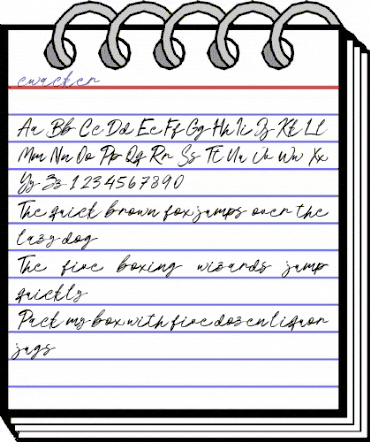 ewacker
Aa Bb Cc Dd Ee Ff Gg Hh Ii Jj Kk Ll
Mm Nn Oo Pp Qq Rr Ss Tt Uu Vv Ww Xx
Yy Zz 1234567890
The quick brown fox jumps over the
lazy dog
The five boxing wizards jump
quickly
Pack my box with five dozen liquor
jugs